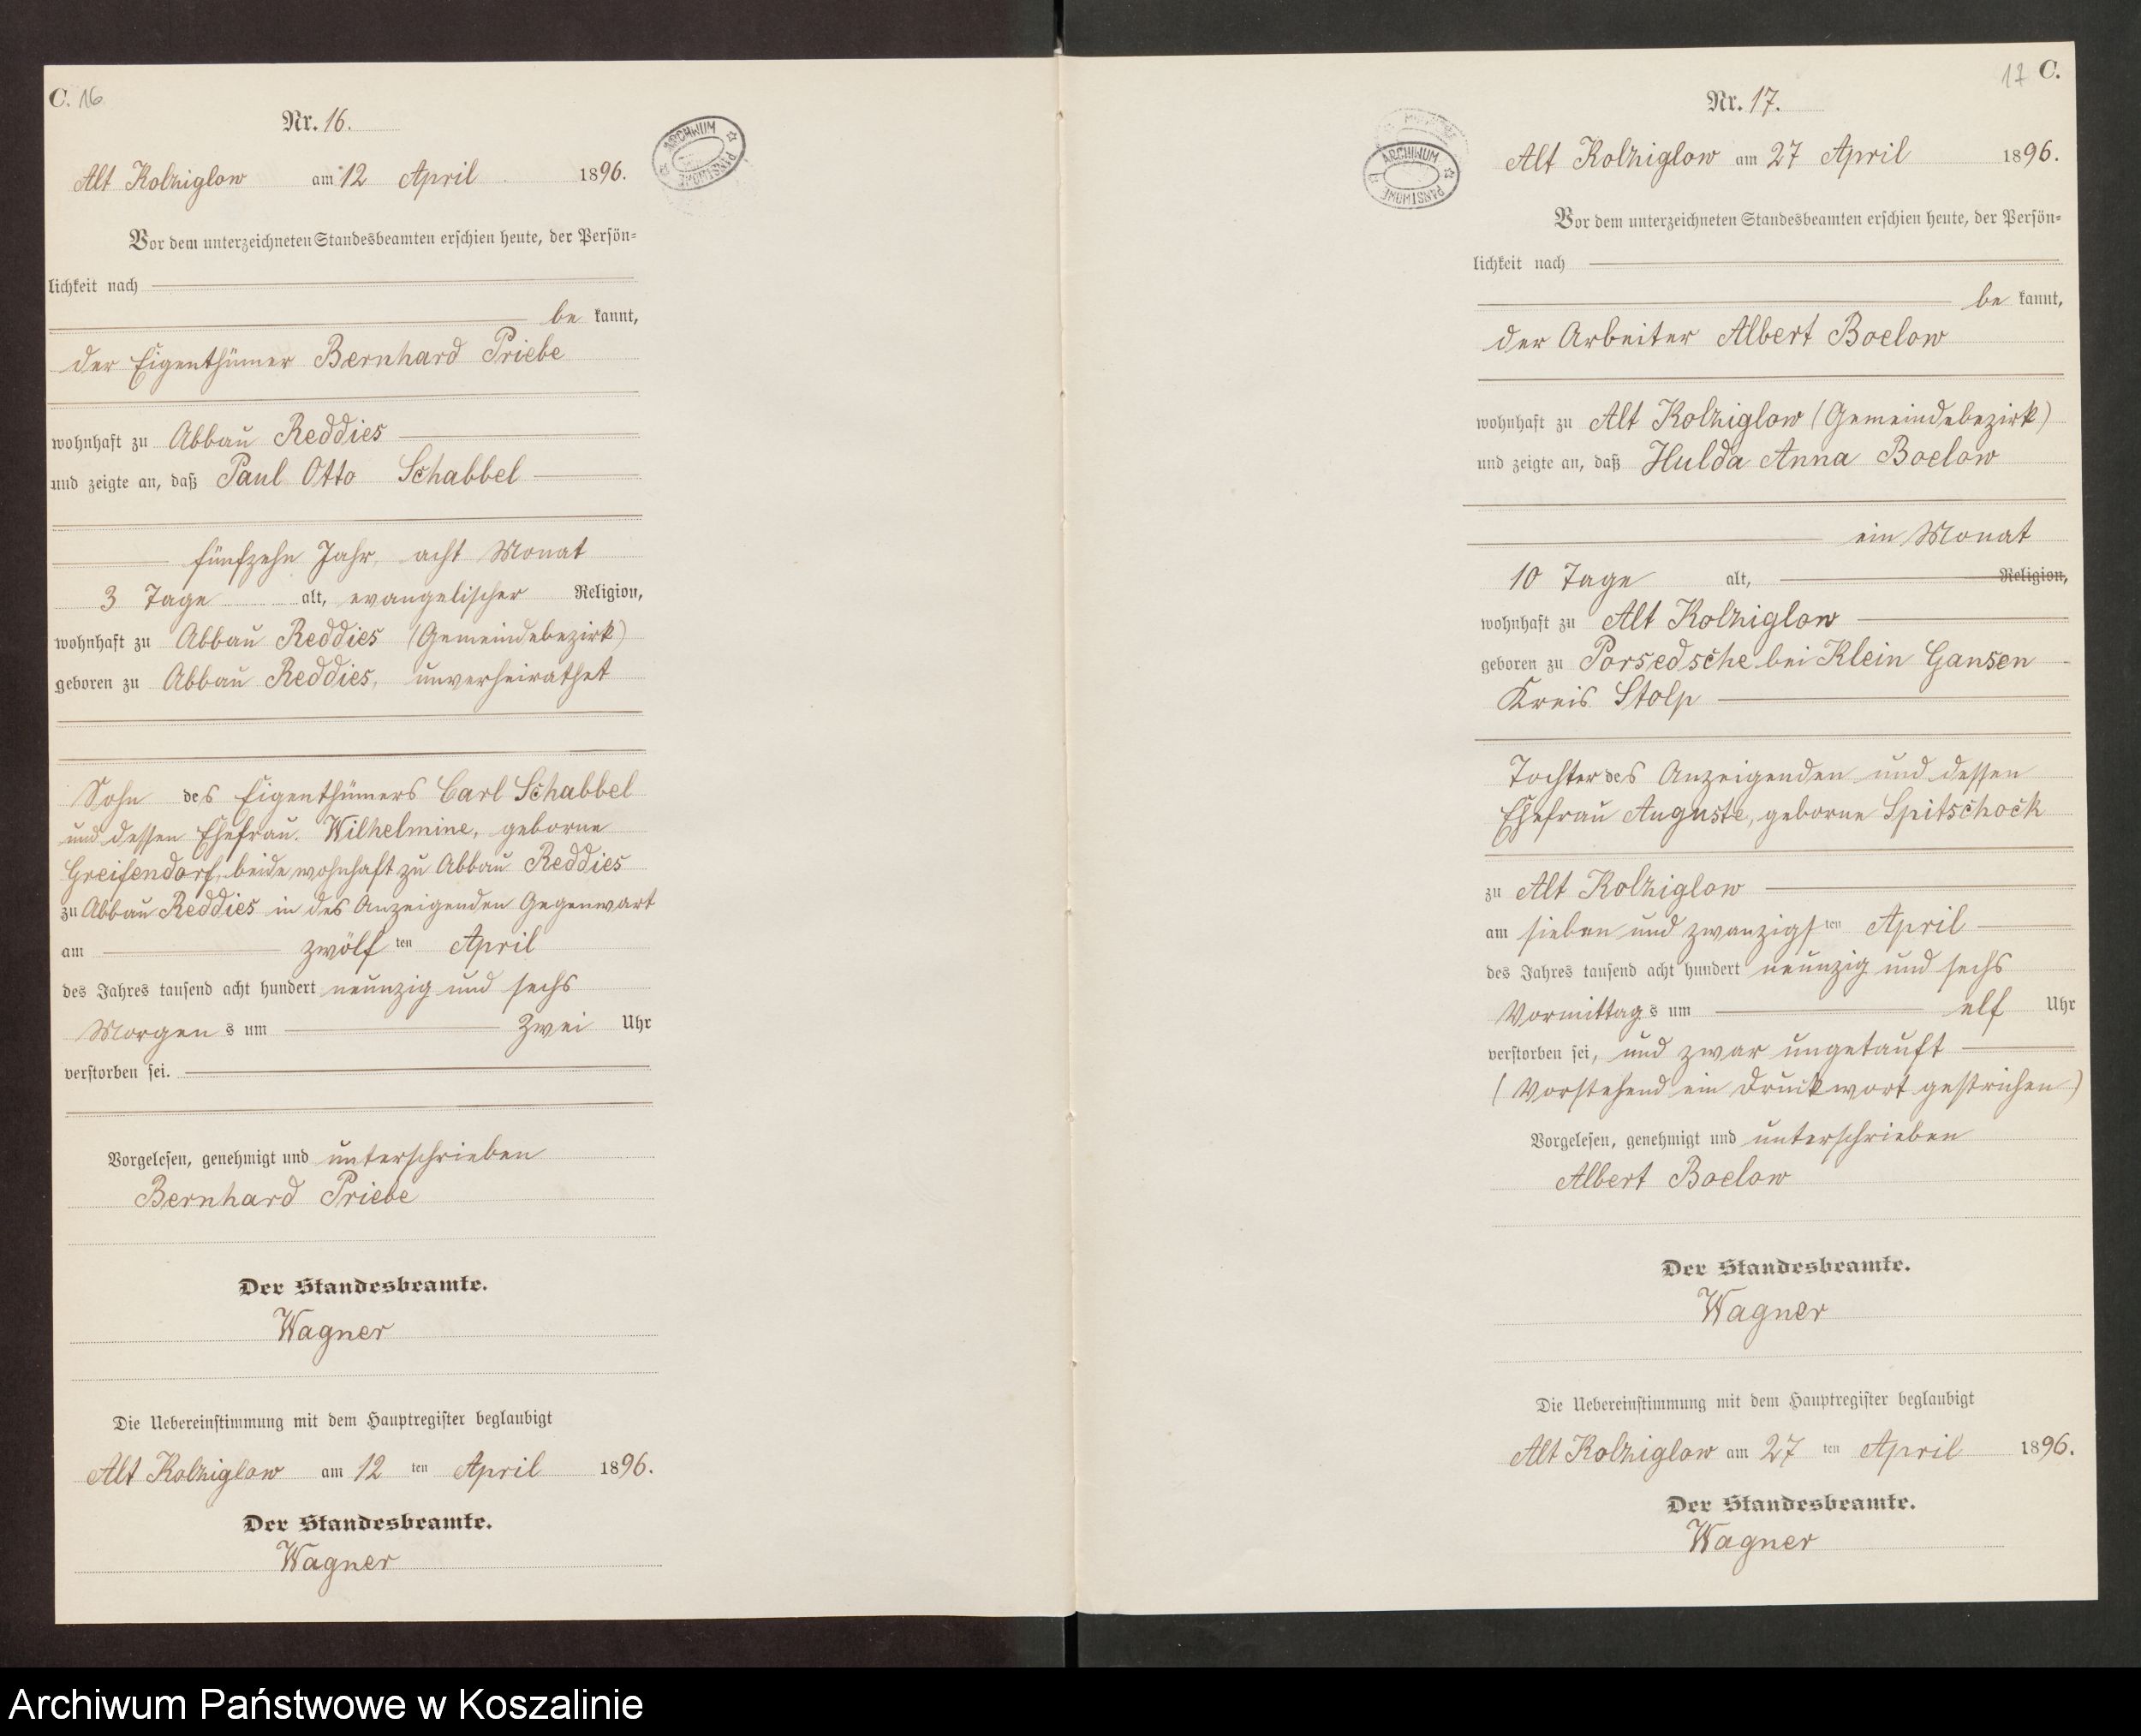 C. 16
Nr. 16.
Alt Kolziglow am 12 April 1896.
Vor dem unterzeichneten Standesbeamten erschien heute, der Persön-
lichkeit nach
be kannt,
der Eigenthümer Bernhard Priebe
wohnhaft zu Abbau Reddies
und zeigte an, daß Paul Otto Schabbel
fünfzehn Jahr, acht Monat
3 Tage alt, evangelischer Religion,
wohnhaft zu Abbau Reddies (Gemeindebezirk)
geboren zu Abbau Reddies, unverheirathet
Sohn des Eigenthümers Carl Schabbel
und dessen Ehefrau Wilhelmine, geborne
Greifendorf, beide wohnhaft zu Abbau Reddies
zu Abbau Reddies in des Anzeigenden Gegenwart
am zwölf ten April
des Jahres tausend acht hundert neunzig und sechs
Morgen s um zwei Uhr
verstorben sei.
Vorgelesen, genehmigt und unterschrieben
Bernhard Priebe
Der Standesbeamte.
Wagner
Die Uebereinstimmung mit dem Hauptregister beglaubigt
Alt Kolziglow am 12 ten April 1896.
Der Standesbeamte.
Wagner
ARCHIWUM PAŃSTWOWE
17 C.
Nr. 17.
Alt Kolziglow am 27 April 1896.
Vor dem unterzeichneten Standesbeamten erschien heute, der Persön-
lichkeit nach
be kannt,
der Arbeiter Albert Boelow
wohnhaft zu Alt Kolziglow (Gemeindebezirk)
und zeigte an, daß Hulda Anna Boelow
ein Monat
10 Tage alt, Religion,
wohnhaft zu Alt Kolziglow
geboren zu Porsedsche bei Klein Gansen
Kreis Stolp
Tochter des Anzeigenden und dessen
Ehefrau Auguste, geborne Spitschock
zu Alt Kolziglow
am sieben und zwanzigs ten April
des Jahres tausend acht hundert neunzig und sechs
Vormittag s um elf Uhr
verstorben sei, und zwar ungetauft
(Vorstehend ein Druckwort gestrichen)
Vorgelesen, genehmigt und unterschrieben
Albert Boelow
Der Standesbeamte.
Wagner
Die Uebereinstimmung mit dem Hauptregister beglaubigt
Alt Kolziglow am 27 ten April 1896.
Der Standesbeamte.
Wagner
ARCHIWUM PAŃSTWOWE
Archiwum Państwowe w Koszalinie